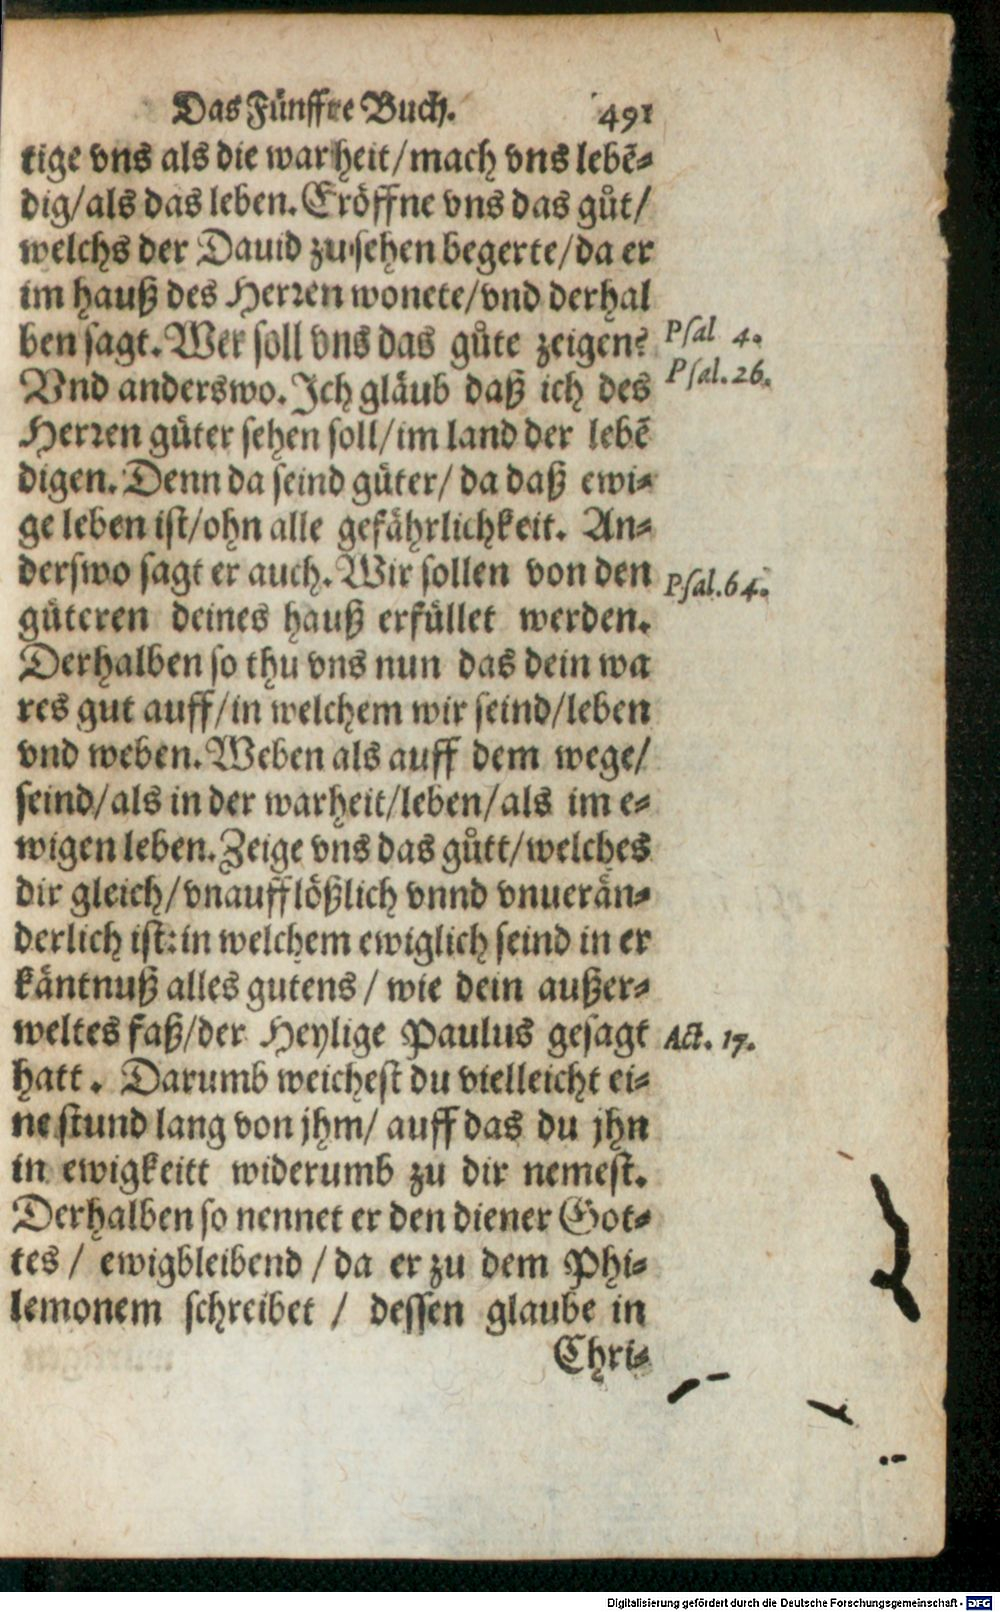 Das Fünffte Buch. 491
tige vns als die warheit/mach vns lebē-
dig/als das leben. Eröffne vns das gůt/
welchs der Dauid zu sehen begerte/da er
im hauß des Herren wonete/vnd derhal
ben sagt. Wer soll vns das gůte zeigen? Psal 4.
Vnd anderswo. Ich gläub daß ich des Psal. 26.
Herren güter sehen soll/im land der lebē
digen. Denn da seind güter/ da daß ewi-
ge leben ist/ohn alle gefährlichkeit. An-
derswo sagt er auch. Wir sollen von den Psal. 64.
güteren deines hauß erfüllet werden.
Derhalben so thu vns nun das dein wa
res gut auff/in welchem wir seind/leben
vnd weben. Weben als auff dem wege/
seind/als in der warheit/leben/als im e-
wigen leben. Zeige vns das gůtt/welches
dir gleich/vnaufflößlich vnnd vnuerän-
derlich ist: in welchem ewiglich seind in er
käntnuß alles gutens / wie dein außer-
weltes faß/der Heylige Paulus gesagt Act. 17.
hatt. Darumb weichest du vielleicht ei-
ne stund lang von jhm/ auff das du jhn
in ewigkeitt widerumb zu dir nemest.
Derhalben so nennet er den diener Got-
tes / ewigbleibend / da er zu dem Phi-
lemonem schreibet / dessen glaube in
Chri-
Digitalisierung gefördert durch die Deutsche Forschungsgemeinschaft - DFG